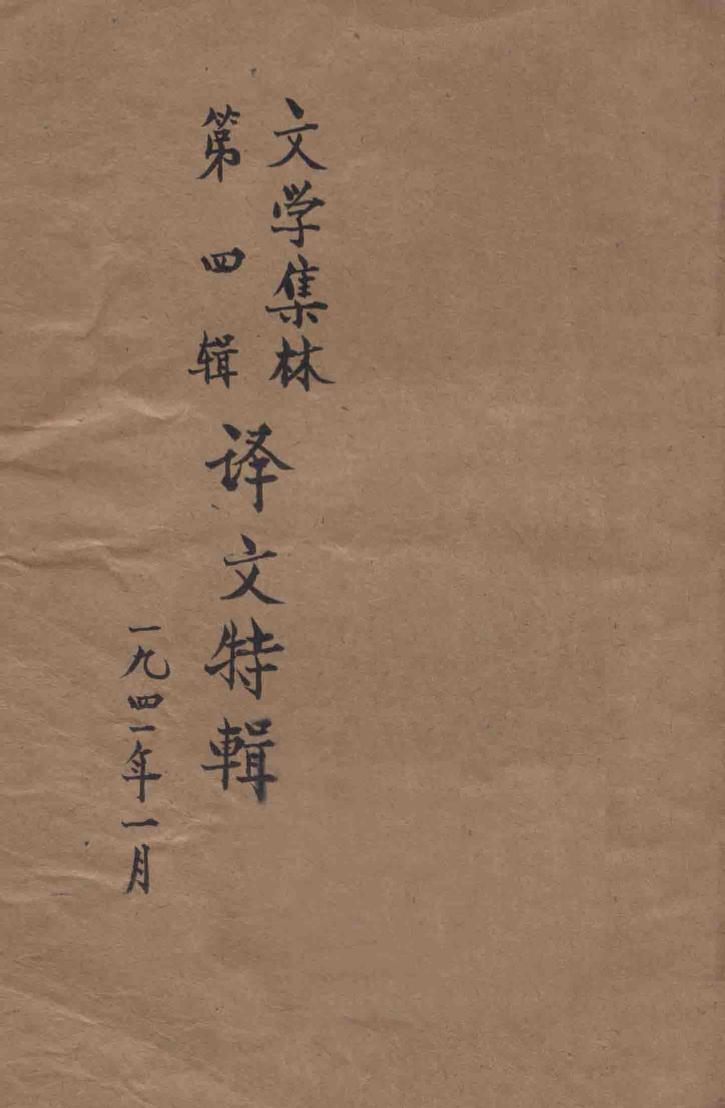 文学集林
第四辑
译文特輯
一九四一年一月